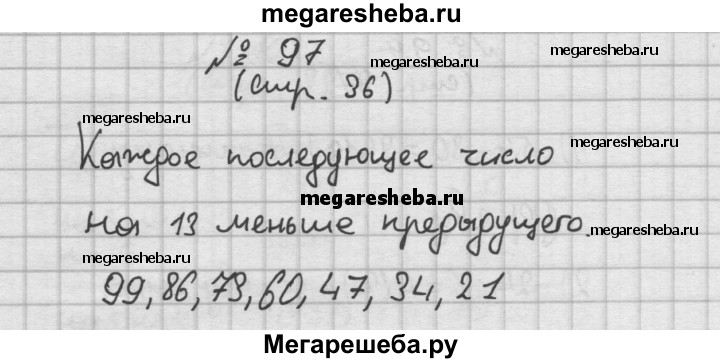 megaresheba.ru
№ 97
megaresheba.ru
(стр. 36)
megaresheba.ru
Каждое последующее число
megaresheba.ru
megaresheba.ru
на 13 меньше предыдущего.
megaresheba.ru
megaresheba.ru
99, 86, 73, 60, 47, 34, 21
Мегарешеба.ру